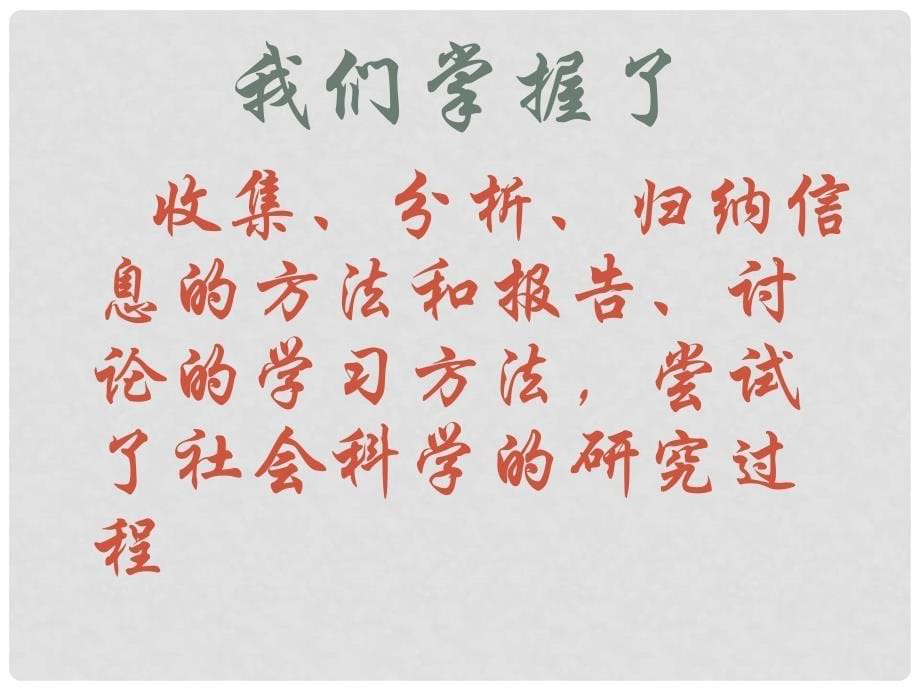 我们掌握了
收集、分析、归纳信
息的方法和报告、讨
论的学习方法，尝试
了社会科学的研究过
程